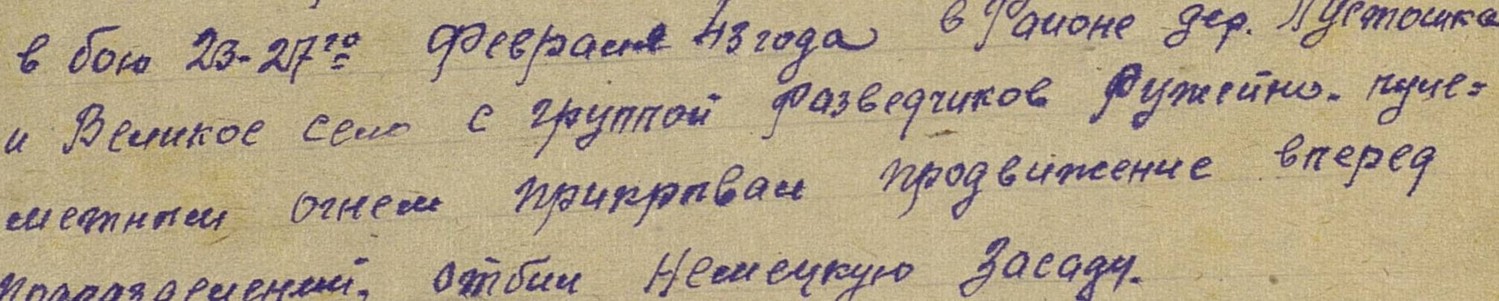 в бою 23-27го Февраля 43 года в Районе дер. Пустошка
и Великое село с группой Разведчиков Ружейно-пуле=
метным огнем прикрывал продвижение вперед
подразделений, отбил Немецкую Засаду.